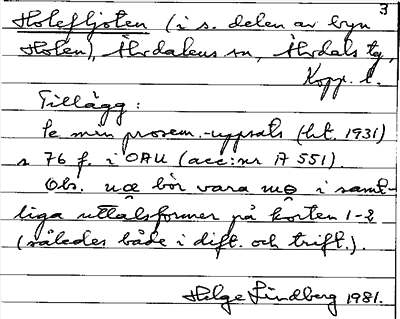 3
Holefljoten (i s. delen av byn
Holen), Ärdalens sn, Ärdals tg,
Kopp. l.
Tillägg:
Se min prosem.-uppsats (ht. 1931)
s 76 f. i OAU (acc:nr A 551).
Obs. bör vara i samt-
liga uttalsformer på korten 1-2
(således både i dift. och trift.).
Helge Lindberg 1981.